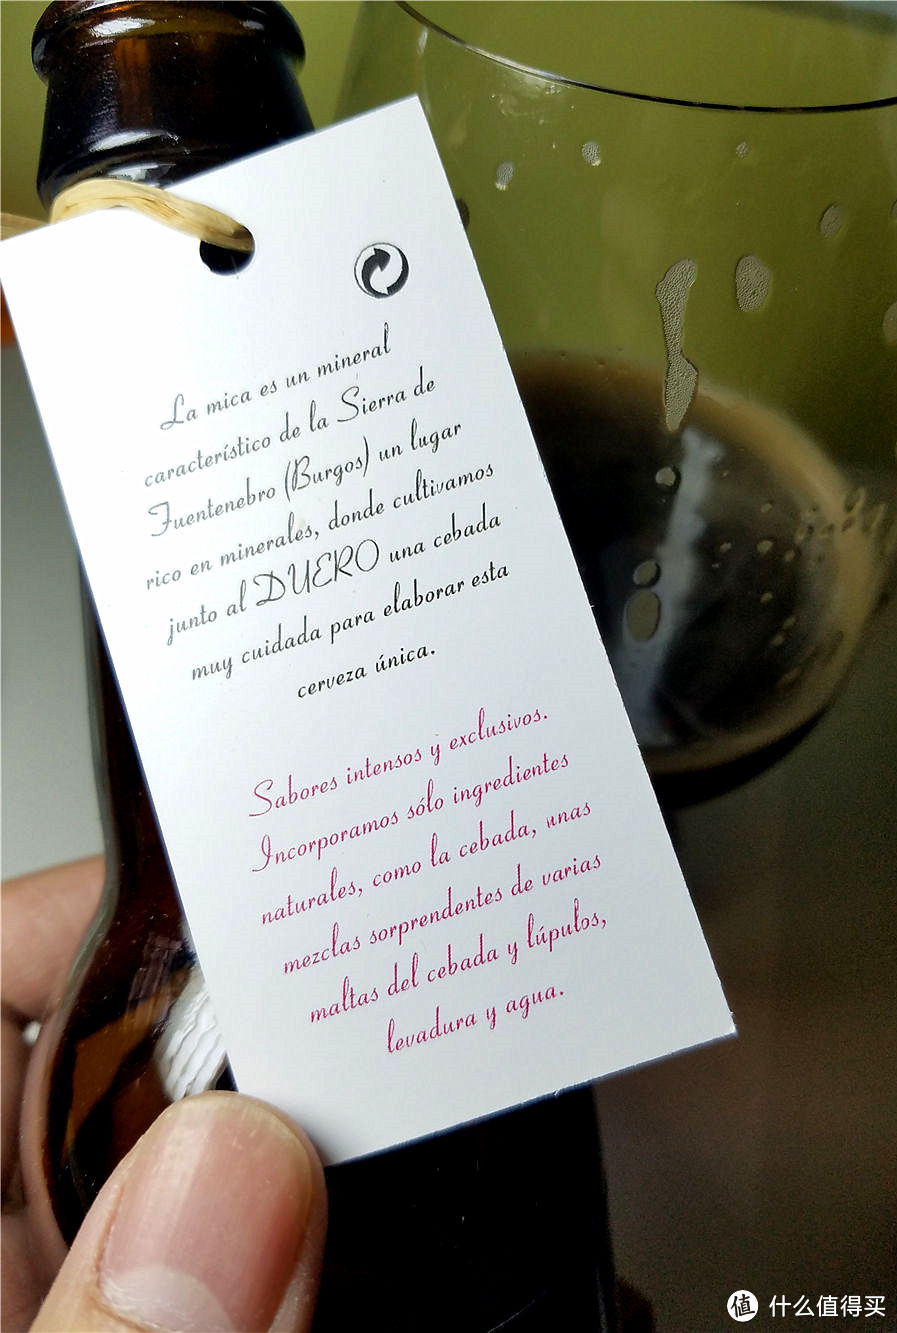 La mica es un mineral
característico de la Sierra de
Fuentenebro (Burgos) un lugar
rico en minerales, donde cultivamos
junto al DUERO una cebada
muy cuidada para elaborar esta
cerveza única.
Sabores intensos y exclusivos.
Incorporamos sólo ingredientes
naturales, como la cebada, unas
mezclas sorprendentes de varias
maltas del cebada y lúpulos,
levadura y agua.
值 什么值得买